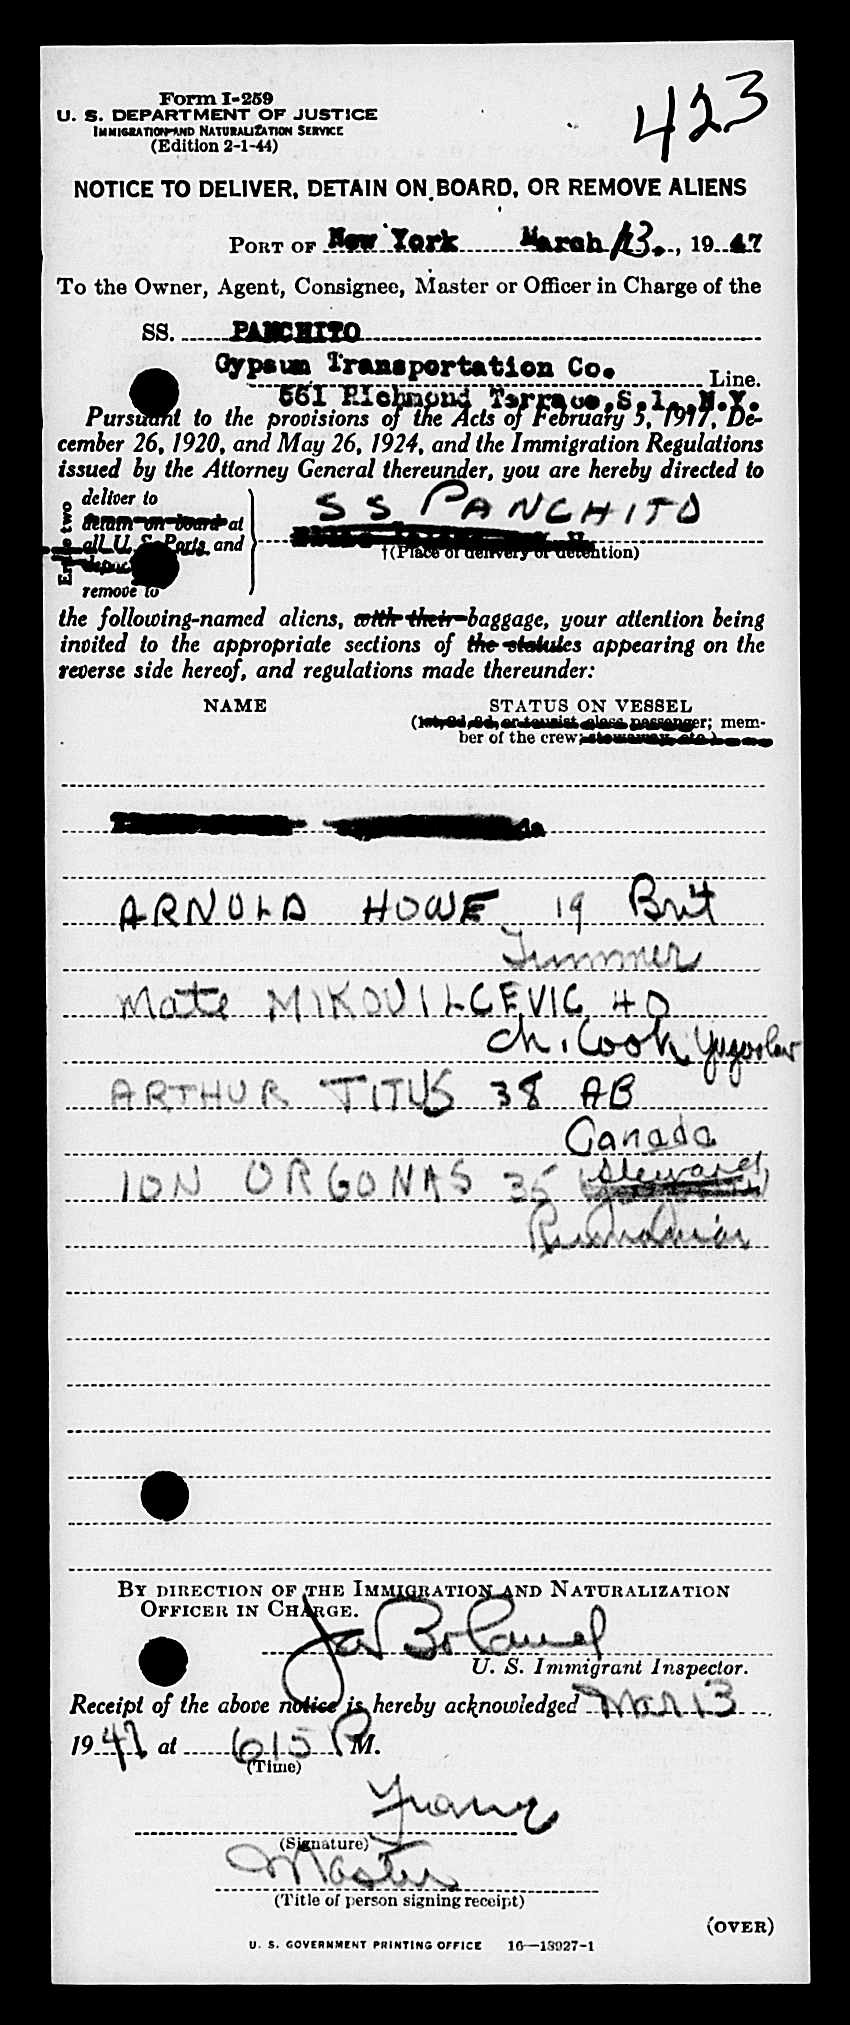 Form I-259
U. S. DEPARTMENT OF JUSTICE
IMMIGRATION AND NATURALIZATION SERVICE
(Edition 2-1-44)
423
NOTICE TO DELIVER, DETAIN ON BOARD, OR REMOVE ALIENS
PORT OF New York March 13., 1947
To the Owner, Agent, Consignee, Master or Officer in Charge of the
SS. PANCHITO
Gypsum Transportation Co. Line.
561 Richmond Terrace, S.I., N.Y.
Pursuant to the provisions of the Acts of February 5, 1917, De-
cember 26, 1920, and May 26, 1924, and the Immigration Regulations
issued by the Attorney General thereunder, you are hereby directed to
Erase two
deliver to
detain on board at
all U. S. Ports and
remove to
SS PANCHITO
†(Place of delivery or detention)
the following-named aliens, with their baggage, your attention being
invited to the appropriate sections of the statutes appearing on the
reverse side hereof, and regulations made thereunder:
NAME STATUS ON VESSEL
(1st, 2d, 3d, or tourist class passenger; mem-
ber of the crew; stowaway, etc.)
ARNOLD HOWE 19 Brit
Trimmer
Mate MIKOVILCEVIC 40
Ch. Cook Yugoslav
ARTHUR TITUS 38 AB
Canada
ION ORGONAS 35 Steward
Rumanian
BY DIRECTION OF THE IMMIGRATION AND NATURALIZATION
OFFICER IN CHARGE.
U. S. Immigrant Inspector.
Receipt of the above notice is hereby acknowledged Mar 13
1947 at 615 PM.
(Time)
(Signature)
Master
(Title of person signing receipt)
(OVER)
U. S. GOVERNMENT PRINTING OFFICE 16—13927-1